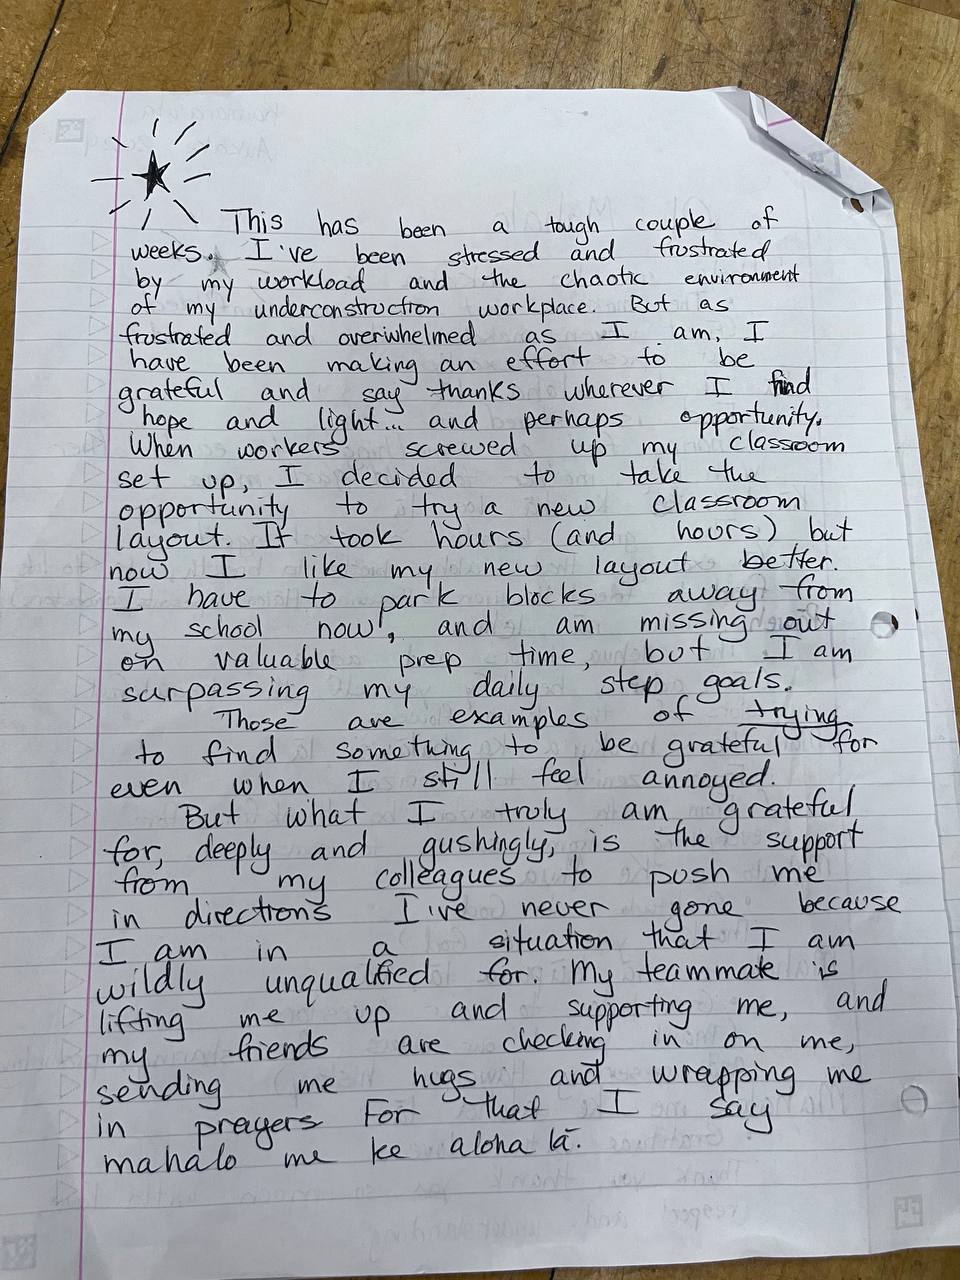 This has been a tough couple of
weeks. I've been stressed and frustrated
by my workload and the chaotic environment
of my underconstruction workplace. But as
frustrated and overwhelmed as I am, I
have been making an effort to be
grateful and say thanks wherever I find
hope and light... and perhaps opportunity.
When workers screwed up my classroom
set up, I decided to take the
opportunity to try a new classroom
layout. It took hours (and hours) but
now I like my new layout better.
I have to park blocks away from
my school now, and am missing out
on valuable prep time, but I am
surpassing my daily step goals.
Those are examples of trying
to find something to be grateful for
even when I still feel annoyed.
But what I truly am grateful
for, deeply and gushingly, is the support
from my colleagues to push me
in directions I've never gone because
I am in a situation that I am
wildly unqualified for. My teammate is
lifting me up and supporting me, and
my friends are checking in on me,
sending me hugs and wrapping me
in prayers For that I say
mahalo me ke aloha lā.